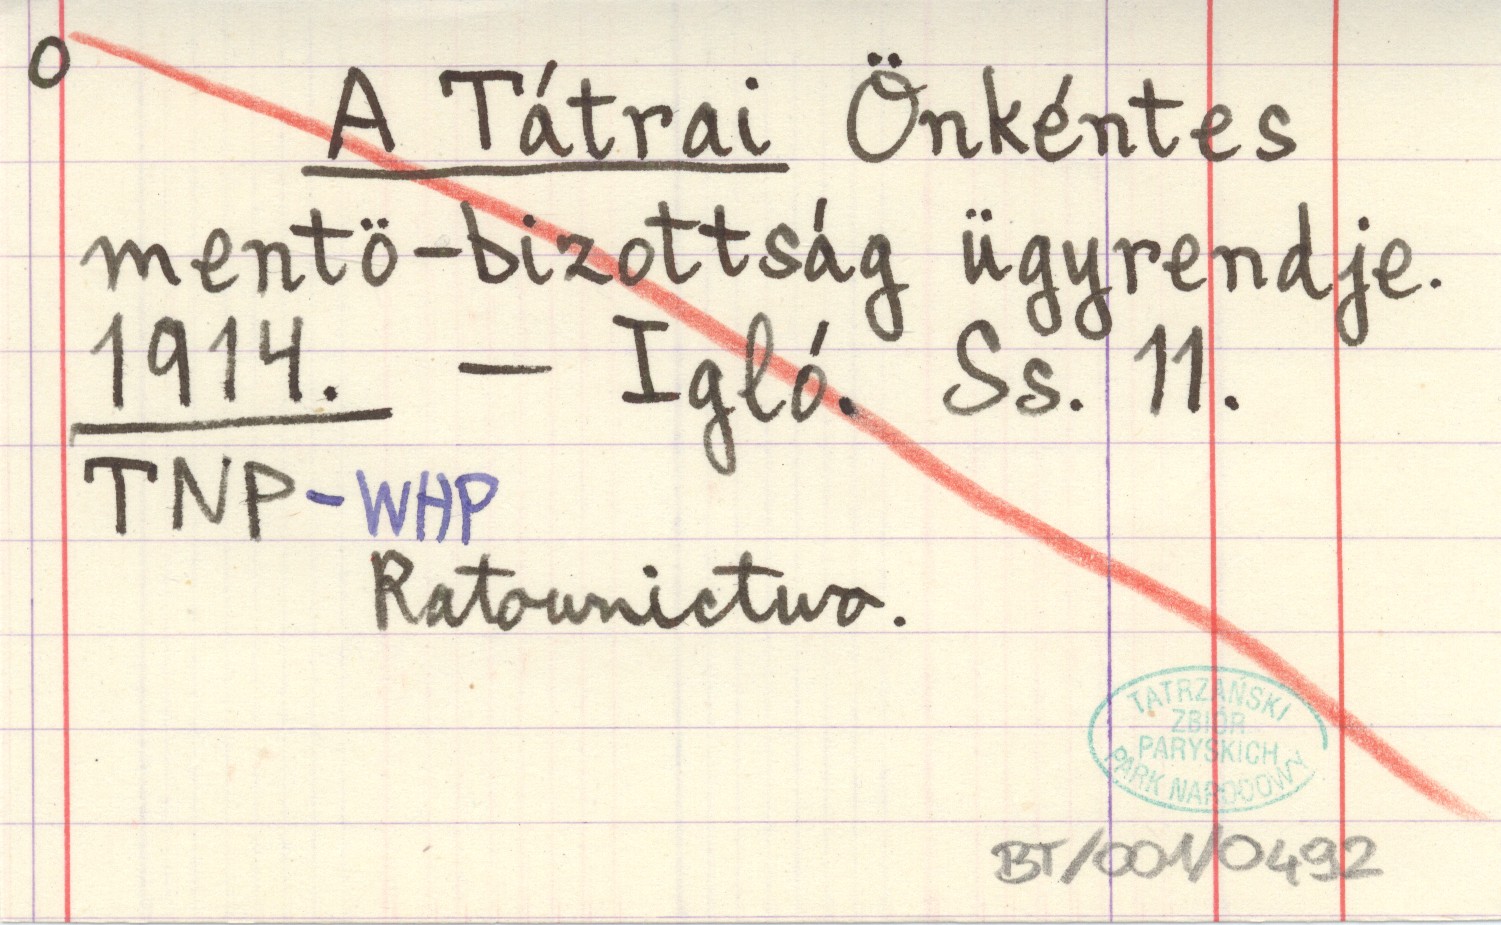 o
A Tátrai Önkéntes
mentö-bizottság ügyrendje.
1914. — Igló. Ss. 11.
TNP-WHP
Ratownictwo.
TATRZAŃSKI
ZBIÓR
PARYSKICH
PARK NARODOWY
BT/001/0492